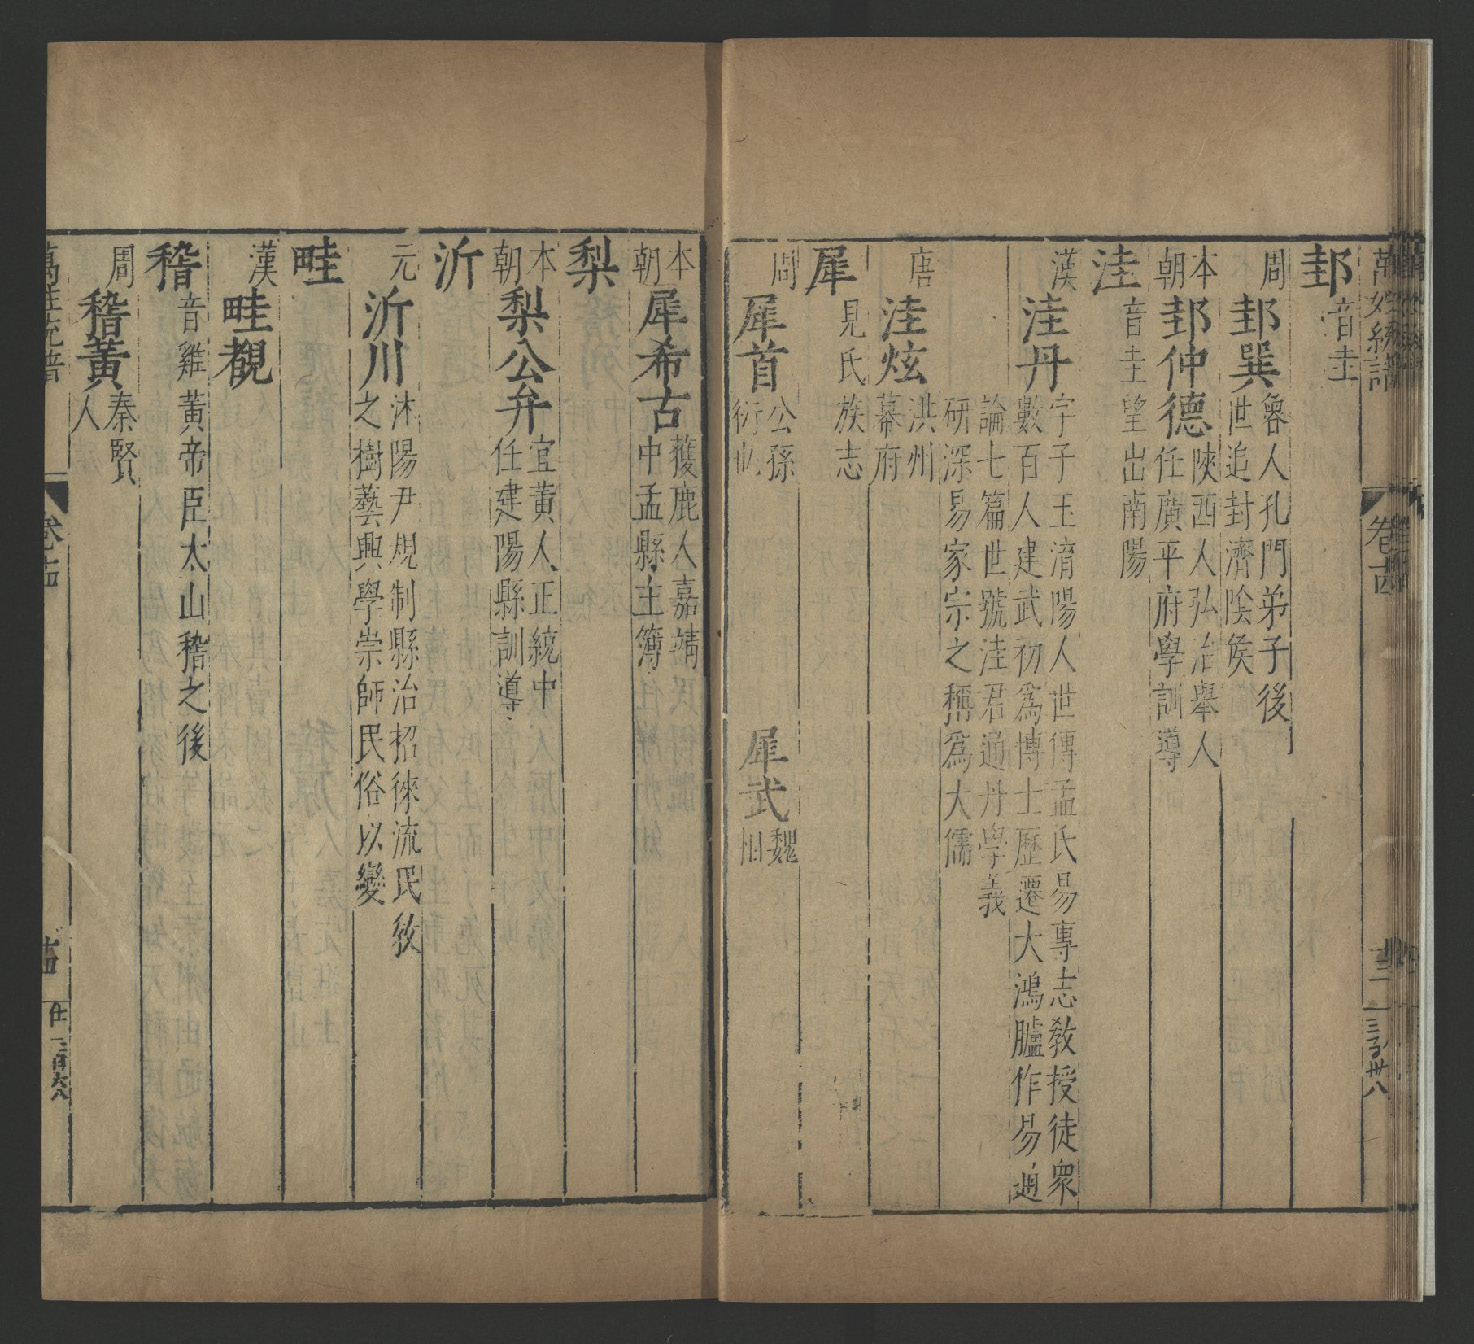 萬姓統譜 卷十四 十三
邽 音圭
周 邽巽 魯人孔門弟子後
世追封濟陰侯
本朝 邽仲德 陝西人弘治舉人
任廣平府學訓導
洼 音圭望出南陽
漢 洼丹 字子玉淯陽人世傳孟氏易專志敎授徒衆
數百人建武初爲博士歷遷大鴻臚作易通
論七篇世號洼君通丹學義
研深易家宗之稱爲大儒
唐 洼炫 洪州
幕府
犀 見氏族志
周 犀首 公孫
衍也 犀武 魏
相
本朝 犀希古 獲鹿人嘉靖
中孟縣主簿
梨
本朝 梨公弁 宜黃人正統中
任建陽縣訓導
沂
元 沂川 沐陽尹規制縣治招徠流民敎
之樹藝興學崇師民俗以變
畦
漢 畦覩
稽 音雞黃帝臣太山稽之後
周 稽黃 秦賢
人
萬姓統譜 卷十四 十四